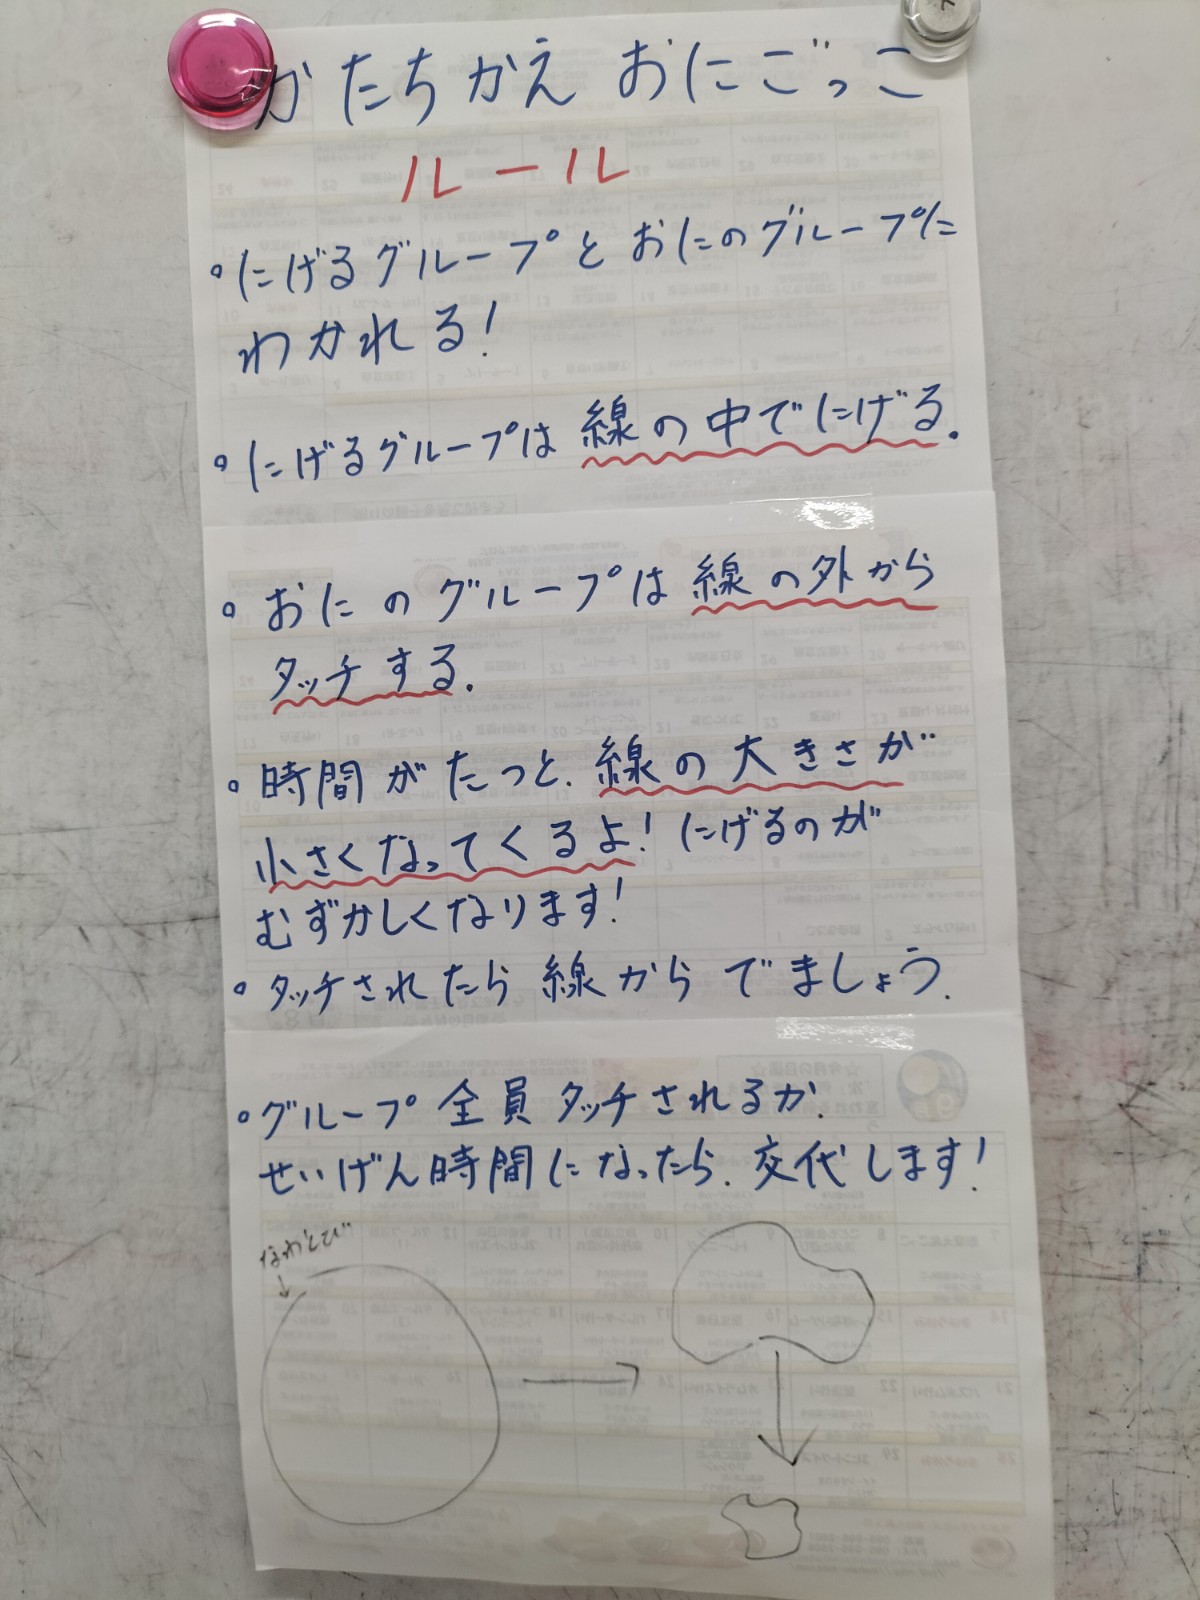 かたちかえ おにごっこ
ルール
・にげるグループとおにのグループに
わかれる!
・にげるグループは線の中でにげる.
・おにのグループは線の外から
タッチする.
・時間がたつと、線の大きさが
小さくなってくるよ!にげるのが
むずかしくなります!
・タッチされたら線からでましょう.
・グループ全員タッチされるか、
せいげん時間になったら、交代します!
なわとび